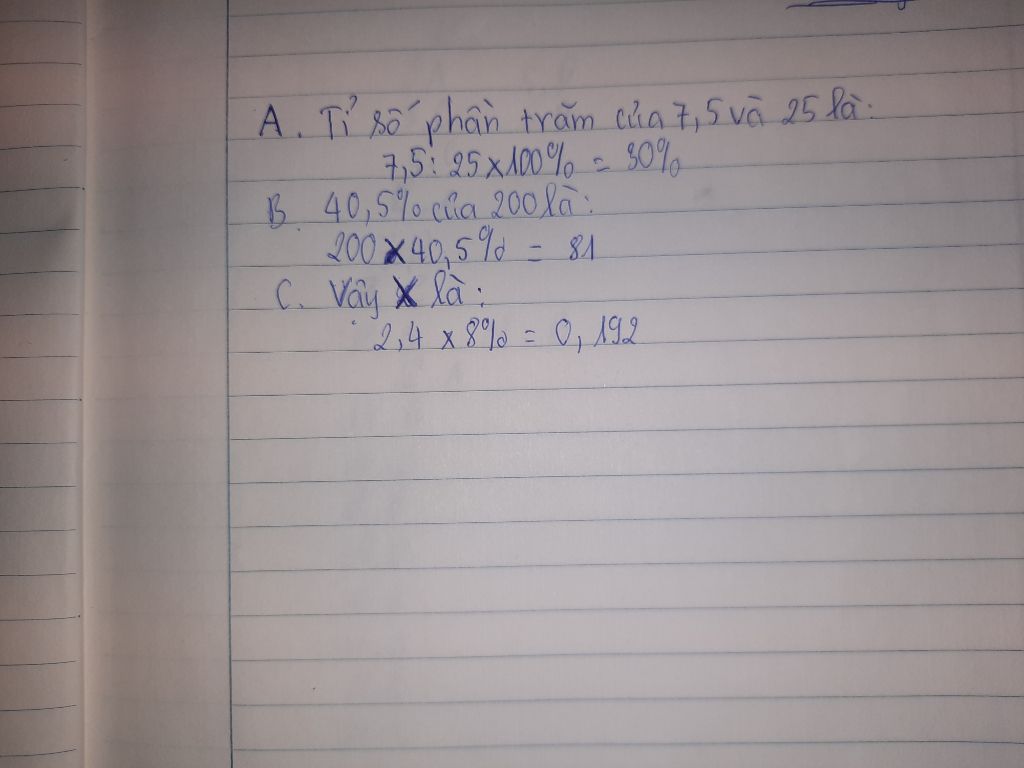 A. Tỉ số phần trăm của 7,5 và 25 là:
7,5 : 25 x 100% = 30%
B. 40,5% của 200 là:
200 x 40,5% = 81
C. Vây X là:
2,4 x 8% = 0,192